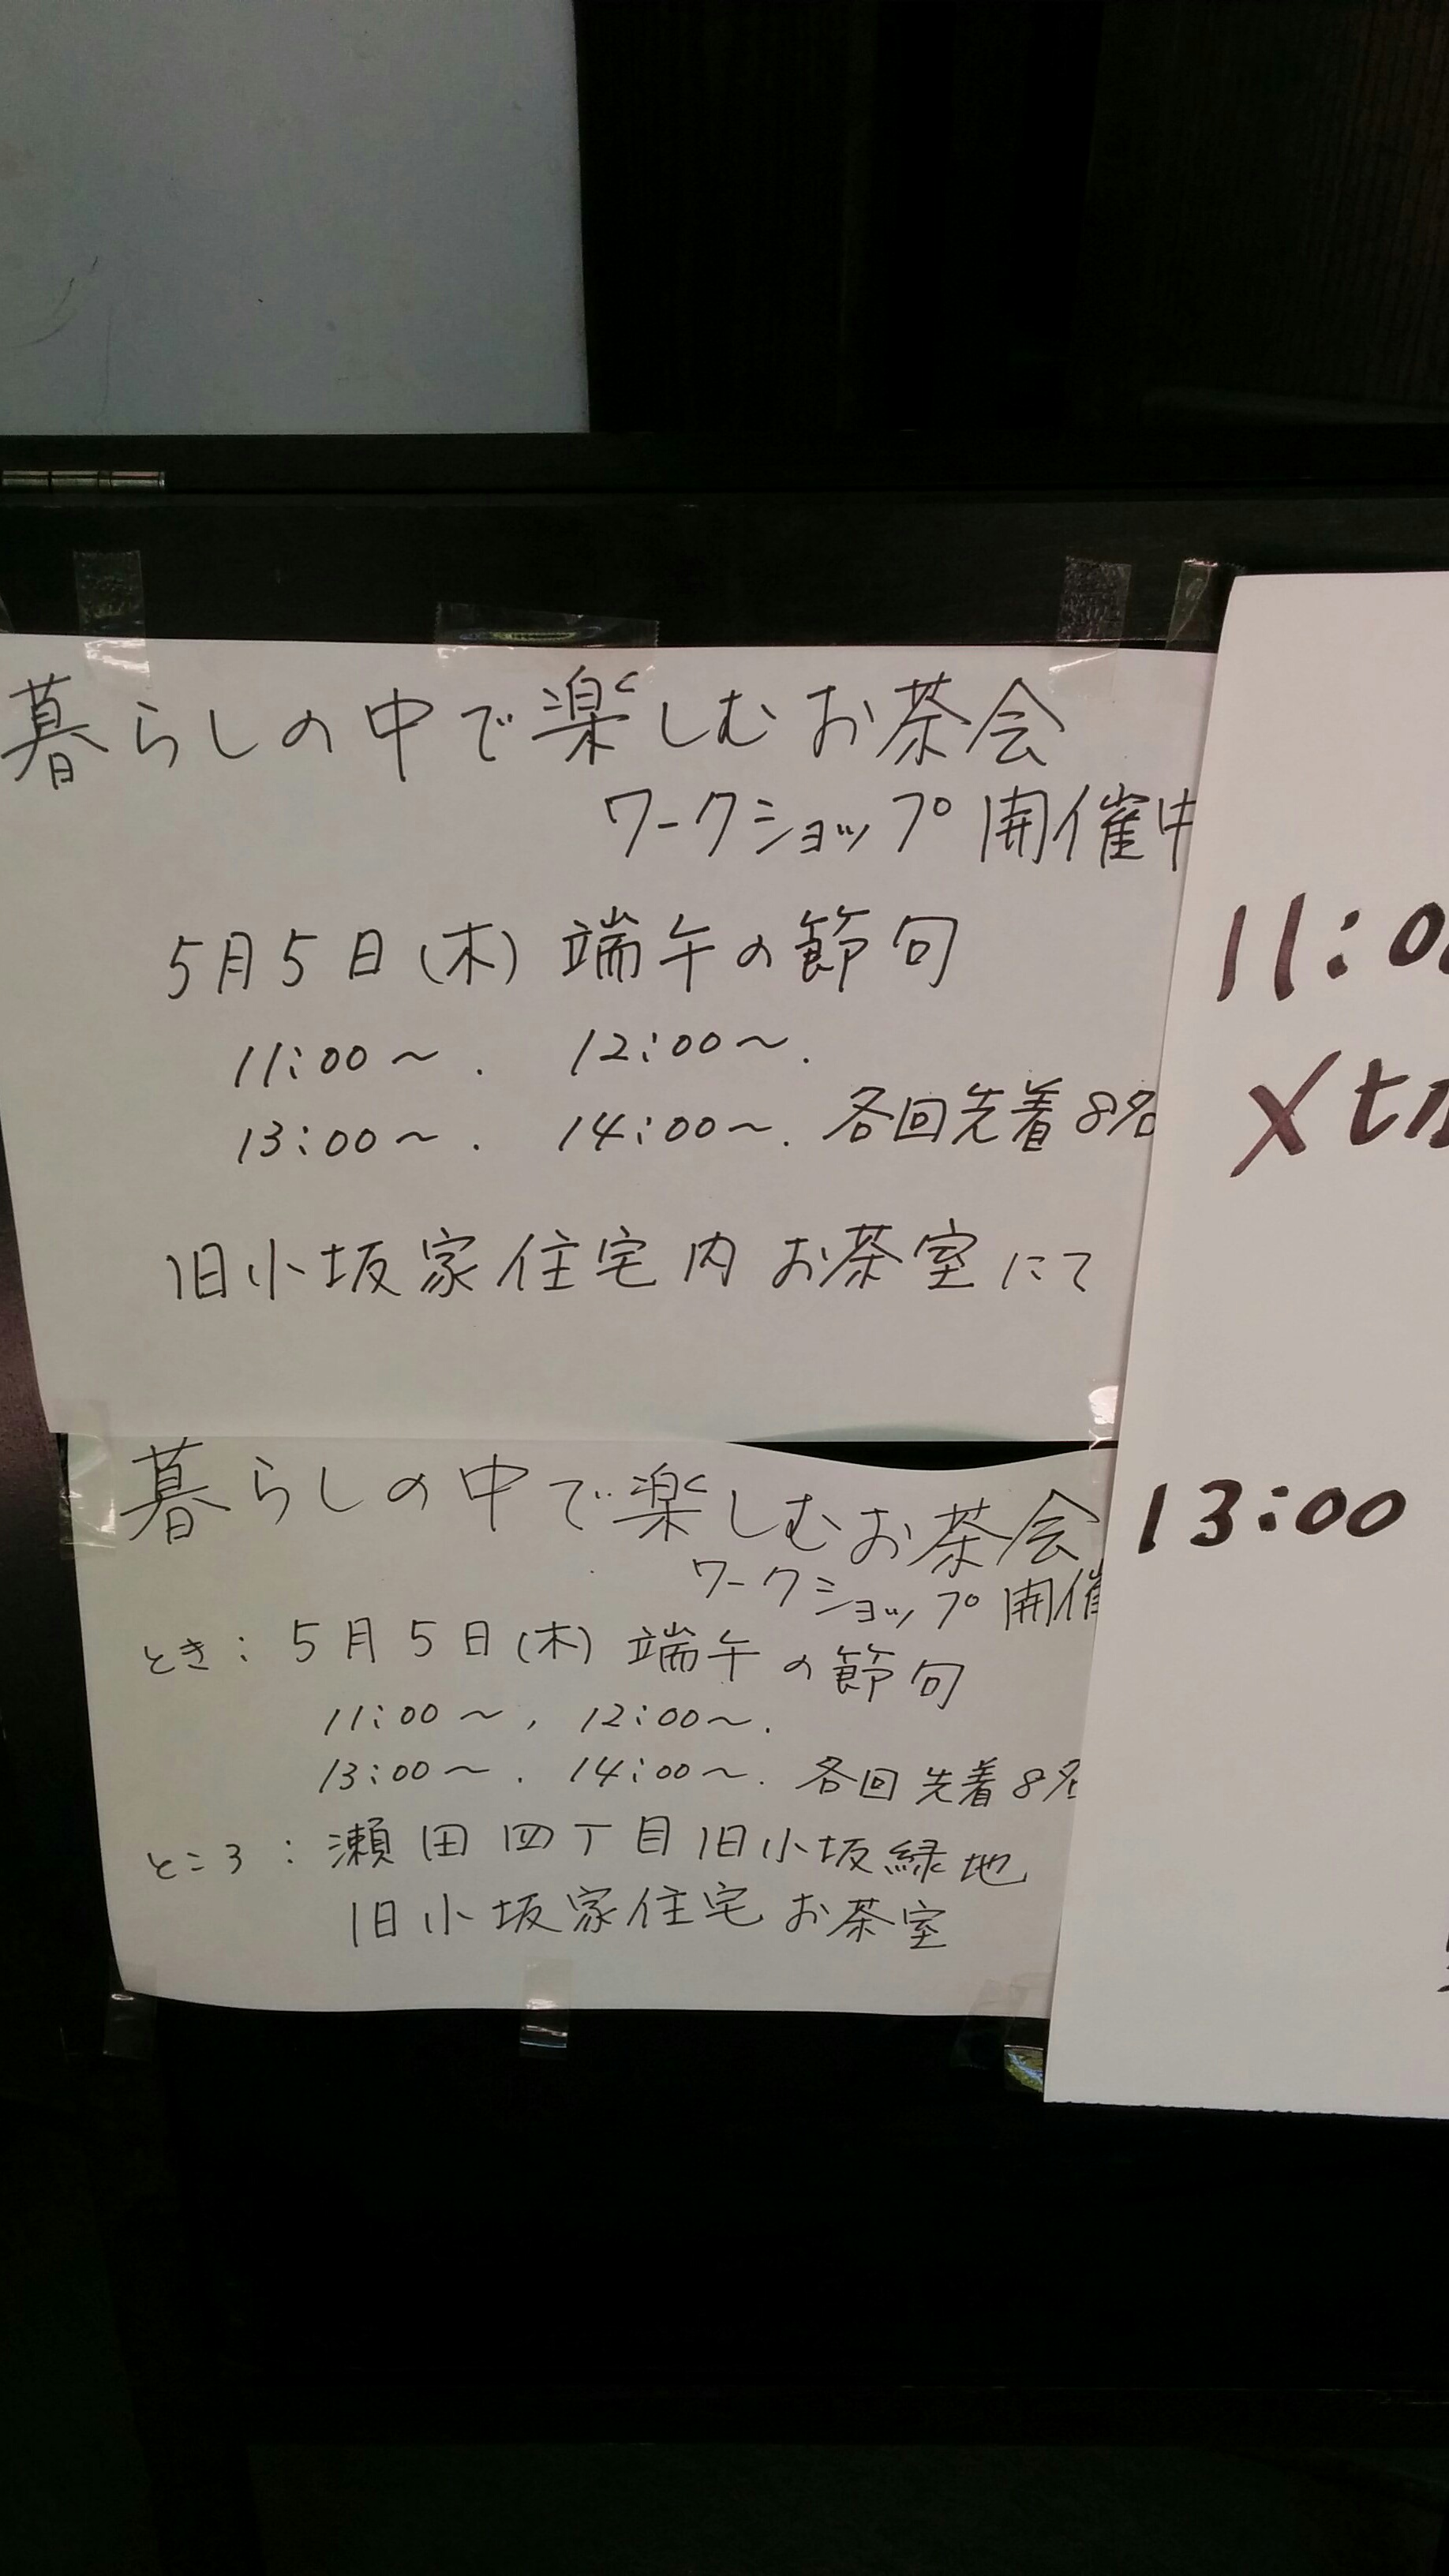 暮らしの中で楽しむお茶会
ワークショップ開催中
5月5日(木) 端午の節句
11:00～. 12:00～.
13:00～. 14:00～. 各回先着8名
旧小坂家住宅内お茶室にて
暮らしの中で楽しむお茶会
ワークショップ開催
とき: 5月5日(木) 端午の節句
11:00～, 12:00～.
13:00～. 14:00～. 各回先着8名
ところ: 瀬田四丁目旧小坂緑地
旧小坂家住宅お茶室
11:00
13:00